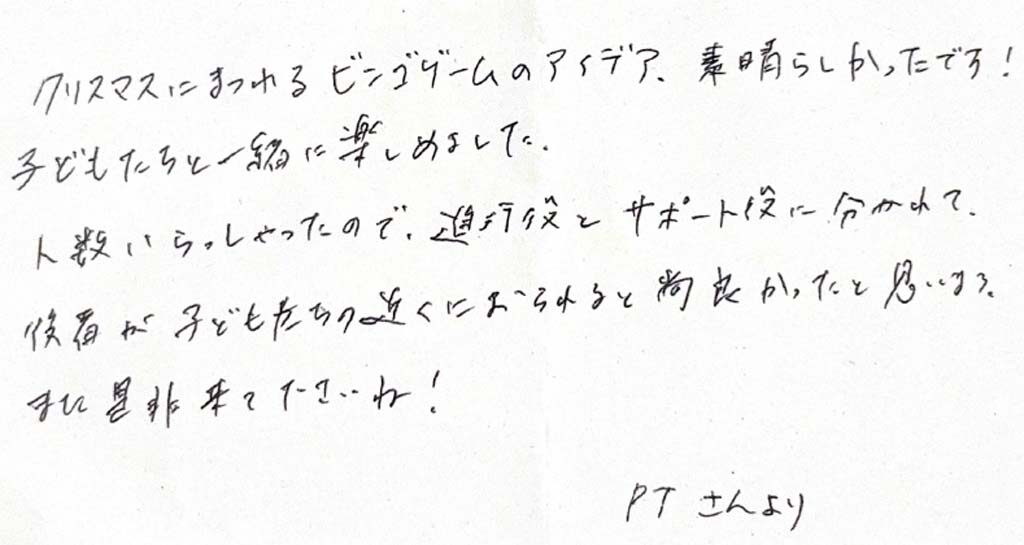 クリスマスにまつわるビンゴゲームのアイデア、素晴らしかったです!
子どもたちと一緒に楽しめました。
人数いらっしゃったので、進行役とサポート役に分かれて、
後者が子どもたちの近くにおられると尚良かったと思います。
また是非来てくださいね!
PTさんより